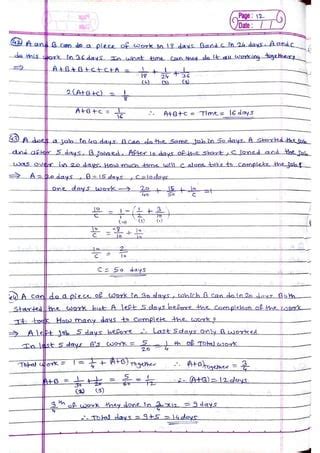 Page: 12
Date: / /
A and B can do a piece of work in 18 days B and C in 24 days. A and C
do this work in 36 days. In what time can they do it all working together?
⇒ A+B+B+C+C+A = 1/18 + 1/24 + 1/36
(4) (3) (2)
2(A+B+C) = 1/8
A+B+C = 1/16 ∴ A+B+C = Time = 16 days
A does a job in 40 days B can do the same job in 50 days. A started the job
and after 5 days, B joined. After 10 days of the start, C joined and the job
was over in 20 days. How much time will C alone take to complete the job?
⇒ A = 20 days, B = 15 days, C = 10 days
One days work → 20/40 + 15/50 + 10/C = 1
10/C = 1 - (1/2 + 3/10)
10/C =
10/C = 2/10
C = 50 days
A can do a piece of work in 30 days, which B can do in 20 days. Both
started the work but A left 5 days before the completion of the work.
It took How many days to complete the work?
⇒ A left job 5 days before ∴ Last 5 days only B worked
In last 5 days B's work = 5/20 = 1/4 th of Total work
Total work = 1 = 1/4 + A+B) Together ∴ A+B together = 3/4
A+B = 1/30 + 1/20 = 5/60 = 1/12 ∴ (A+B) = 12 days
(2) (3)
3/4 th of work they done in 3/4 x 12 = 9 days
∴ Total days = 9+5 = 14 days